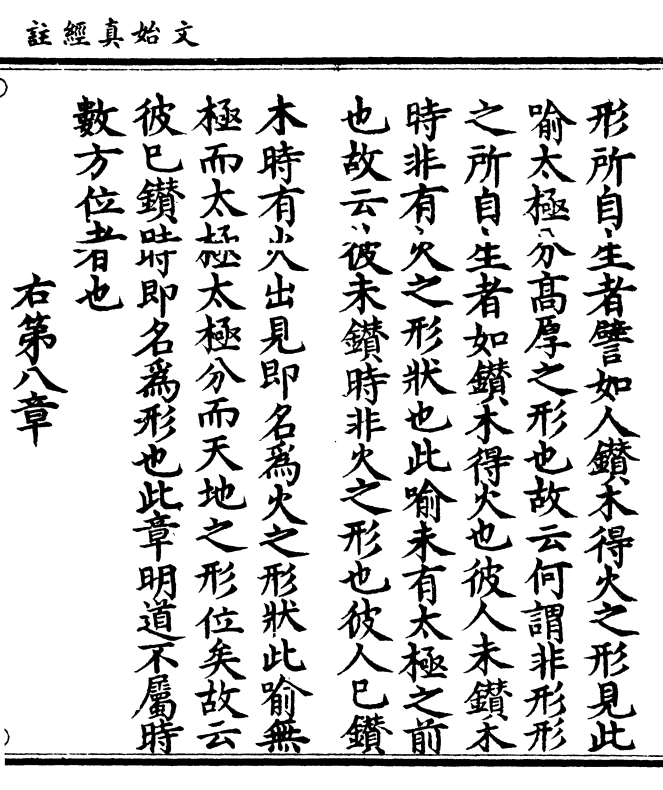 文始真經註
形所自生者譬如人鑽木得火之形見此
喻太極分高厚之形也故云何謂非形形
之所自生者如鑽木得火也彼人未鑽木
時非有火之形狀也此喻未有太極之前
也故云彼未鑽時非火之形也彼人已鑽
木時有火出見即名爲火之形狀此喻無
極而太極太極分而天地之形位矣故云
彼已鑽時即名爲形也此章明道不屬時
數方位者也
右第八章